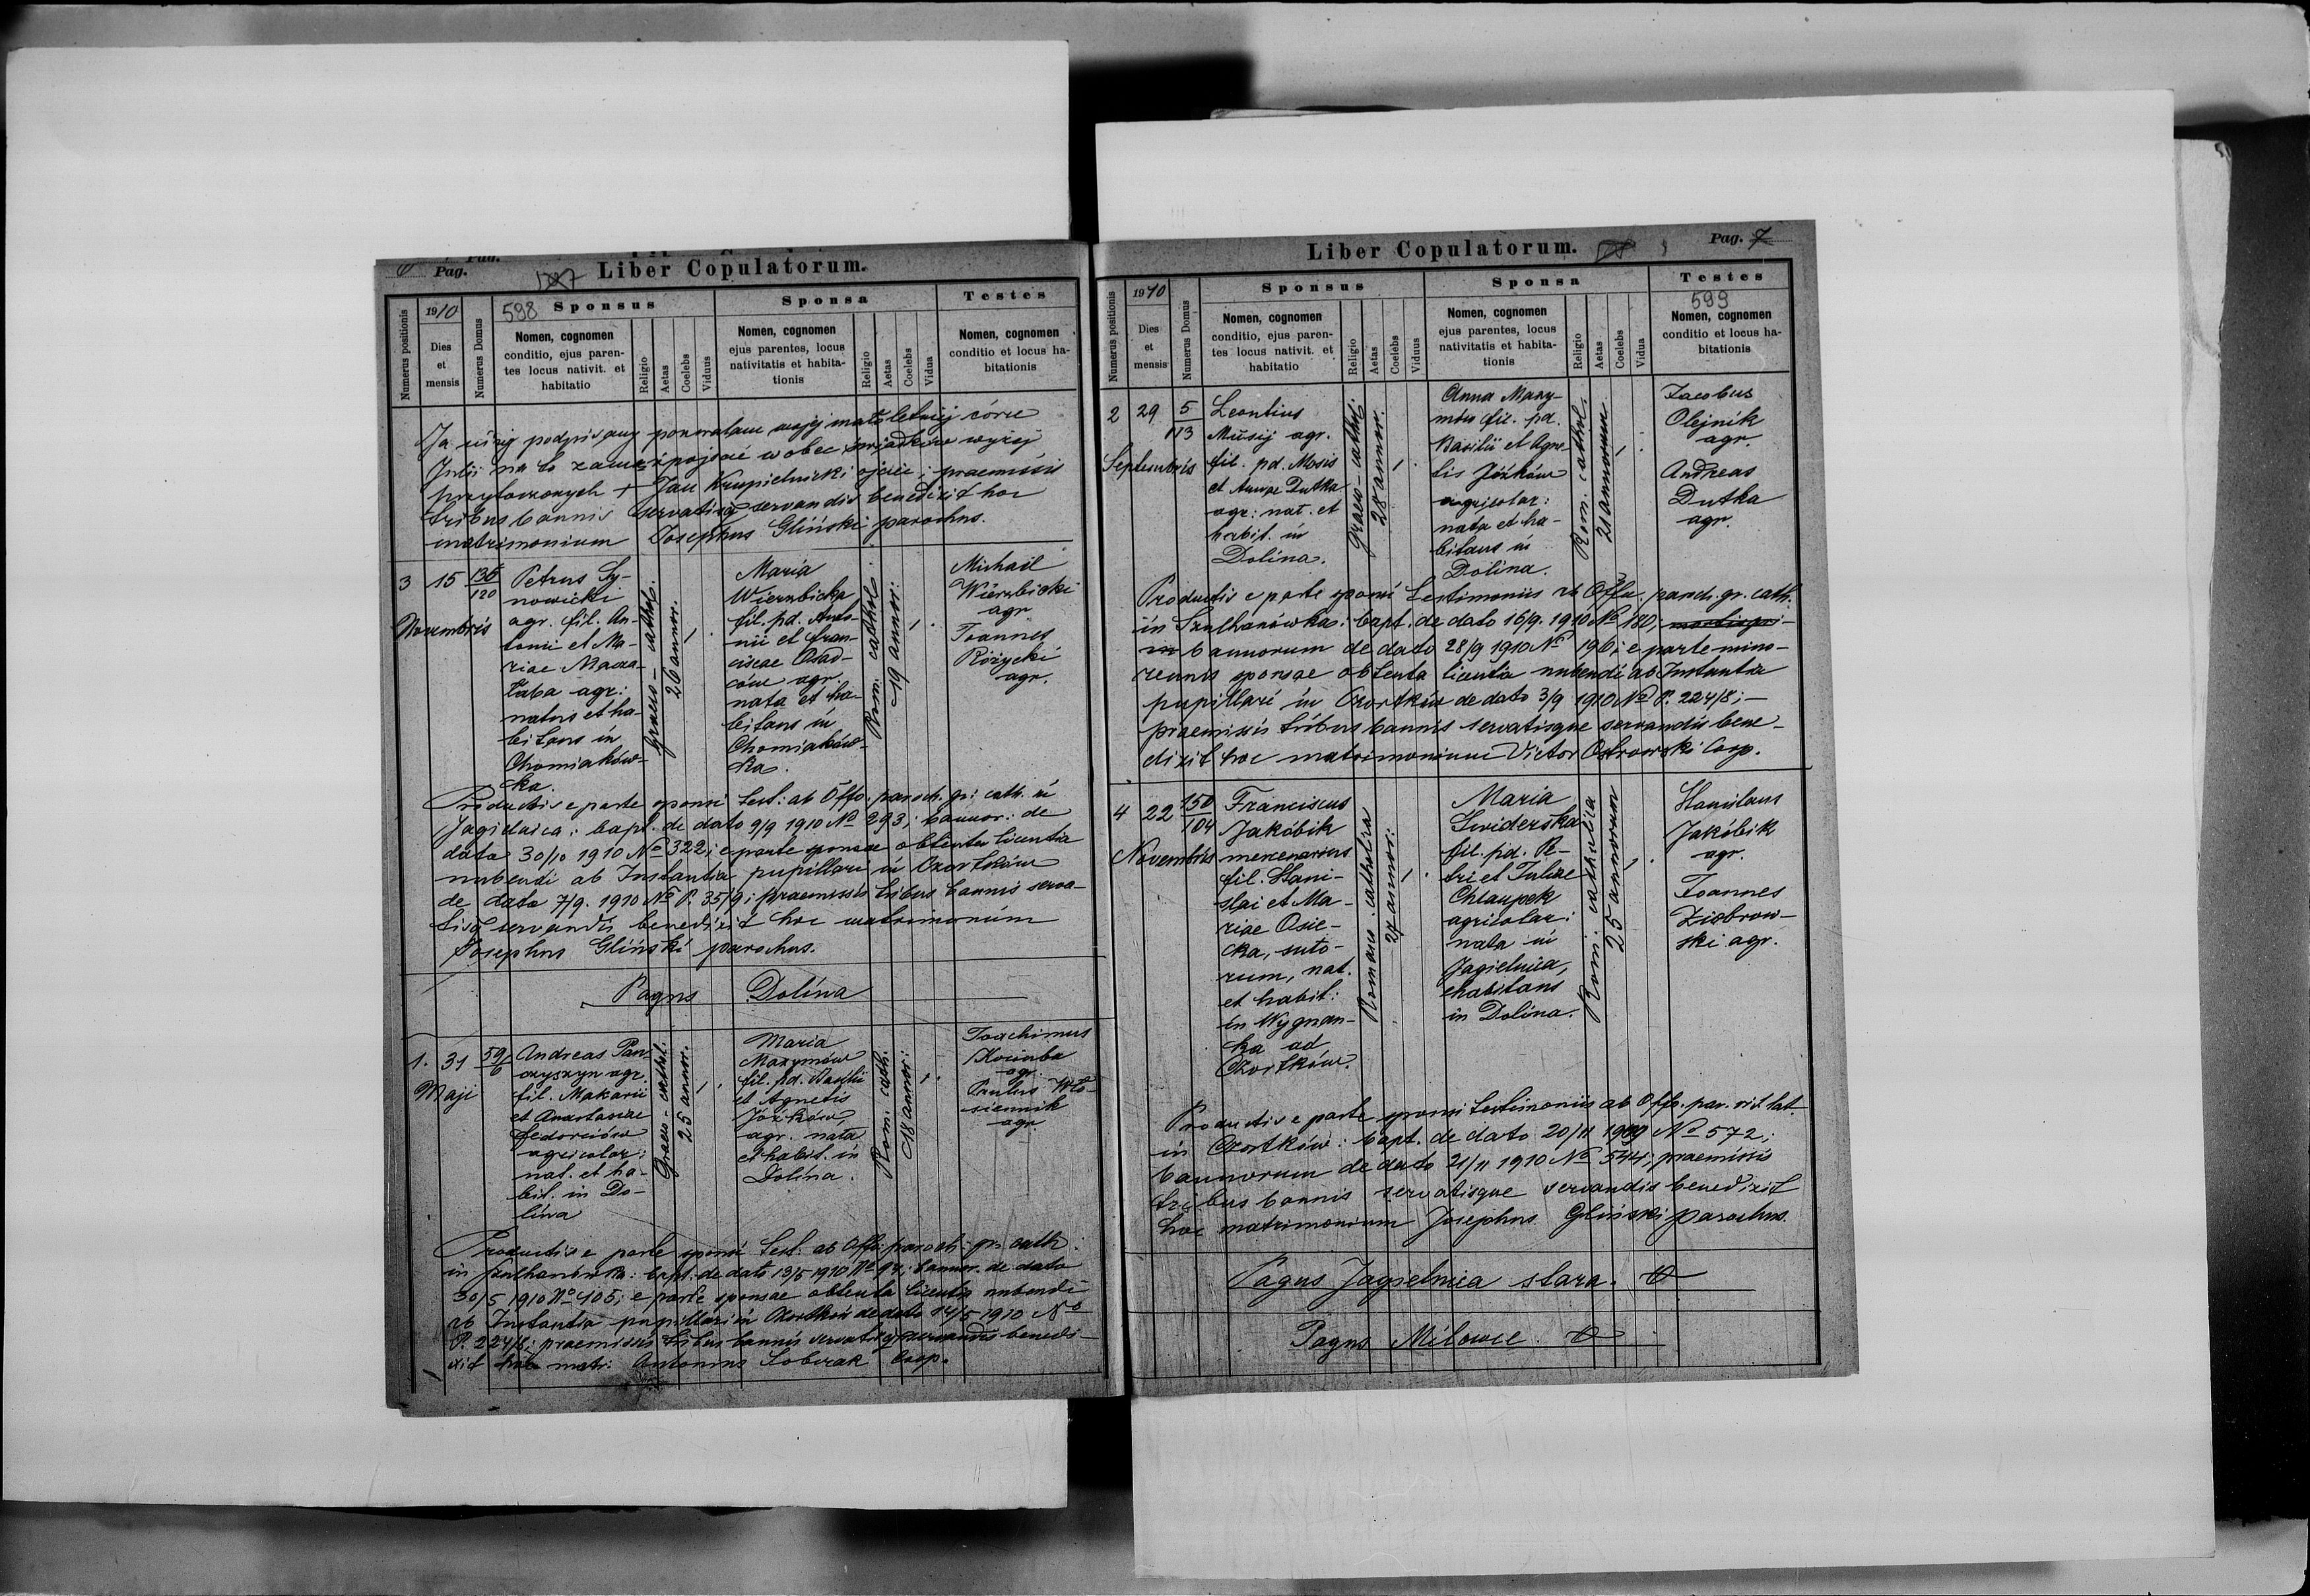 Pag.
Liber Copulatorum.
Numerus positionis
1910
Dies et mensis
Numerus Domus
598
Sponsus
Nomen, cognomen
conditio, ejus paren-
tes locus nativit. et
habitatio
Religio
Aetas
Coelebs
Viduus
Sponsa
Nomen, cognomen
ejus parentes, locus
nativitatis et habita-
tionis
Religio
Aetas
Coelebs
Vidua
Testes
Nomen, cognomen
conditio et locus ha-
bitationis
Ja niżej podpisany pozwalam mojej małoletniej córce
Julii na to zamążpójście wobec świadków wyżej
przytoczonych + Jan Krupielnicki ojciec; praemissis
tribus bannis servatisq servandis benedixit hoc
matrimonium Josephus Gliński parochus.
3
15
Novembris
136
120
Petrus Sy-
nowicki
agr. fil. An-
tonii et Ma-
riae Macza-
łaba agr:
natus et ha-
bitans in
Chomiaków-
ka.
Graeco-cathol.
26 annor.
Maria
Wierzbicka
fil. pd. Anto-
nii et Fran-
ciscae Osad-
ców agr.
nata et ha-
bitans in
Chomiaków-
ka.
Rom. cathol.
19 annor:
Michael
Wierzbicki
agr
Joannes
Różycki
agr.
Productis e parte sponsi test: ab Offo. paroch. gr: cath. in
Jagielnica: bapt. de dato 9/9 1910 No 293; bannor: de
dato 30/10 1910 No 322; e parte sponsae obtenta licentia
nubendi ab Instantia pupillari in Czortków
de dato 7/9. 1910 No P. 35/9; praemissis tribus bannis serva-
tisq servandis benedixit hoc matrimonium
Josephus Gliński parochus.
Pagus Dolina
1.
31
Maji
59
6
Andreas Pan-
czyszyn agr.
fil. Makarii
et Anastasiae
Fedorciów
agricolar:
nat. et ha-
bit. in Do-
lina
Graeco-cathol.
25 annor.
Maria
Maxymów
fil. pd. Basilii
et Agnetis
Józków
agr. nata
et habit. in
Dolina.
Rom. cath.
18 annor:
Joachimus
Kociuba
agr.
Paulus Wło-
siennik
agr.
Productis e parte sponsi test: ab Offo paroch. gr. cath:
in Szulhanówka: bapt. de dato 13/5 1910 No 97; bannor. de dato
30/5 1910 No 105; e parte sponsae obtenta licentia nubendi
ab Instantia pupillari in Czortków de dato 14/5 1910 No
P. 224/8; praemissis tribus bannis servatisq servandis benedi-
xit hoc matr: Antonius Sobczak Coop.
Liber Copulatorum.
Pag. 7
Numerus positionis
1910
Dies
et
mensis
Numerus Domus
Sponsus
Nomen, cognomen
conditio, ejus paren-
tes locus nativit. et
habitatio
Religio
Aetas
Coelebs
Viduus
Sponsa
Nomen, cognomen
ejus parentes, locus
nativitatis et habita-
tionis
Religio
Aetas
Coelebs
Vidua
Testes
599
Nomen, cognomen
conditio et locus ha-
bitationis
2
29
Septembris
5
113
Leontius
Musij agr.
fil. pd. Mosis
et Annae Dutka
agr: nat. et
habit. in
Dolina.
Graeco-cathol.
28 annor.
Anna Maxy-
mów fil. pd.
Basilii et Agne-
tis Józków
agricolar:
nata et ha-
bitans in
Dolina.
Rom. cathol.
21 annorum
Jacobus
Olejnik
agr.
Andreas
Dutka
agr.
Productis e parte sponsi testimoniis ab Offo. paroch. gr. cath.
in Szulhanówka: bapt. de dato 16/9. 1910 No 180;
bannorum de dato 28/9 1910 No 196; e parte mino-
rennis sponsae obtenta licentia nubendi ab Instantia
pupillari in Czortków de dato 3/9 1910 No P. 224/8; —
praemissis tribus bannis servatisque servandis bene-
dixit hoc matrimonium Victor Ostrowski Coop.
4
22
Novembris
150
104
Franciscus
Jakóbik
mercenarius
fil. Stani-
slai et Ma-
riae Osie-
cka, suto-
rum, nat.
et habit:
in Wygnan-
ka ad
Czortków.
Romano catholica
27 annor:
Maria
Swiderska
fil. pd. Pe-
tri et Juliae
Chłaupek
agricolar:
nata in
Jagielnica,
habitans
in Dolina.
Rom. catholica
25 annorum
Stanislaus
Jakóbik
agr.
Joannes
Ziobrow-
ski agr.
Productis e parte sponsi testimoniis ab Offo. par. rit lat.
in Czortków: bapt. de dato 20/11 1909 No 572;
bannorum de dato 21/11 1910 No 544; praemissis
tribus bannis servatisque servandis benedixit
hoc matrimonium Josephus Gliński parochus.
Pagus Jagielnica stara.
Pagus Milowce.